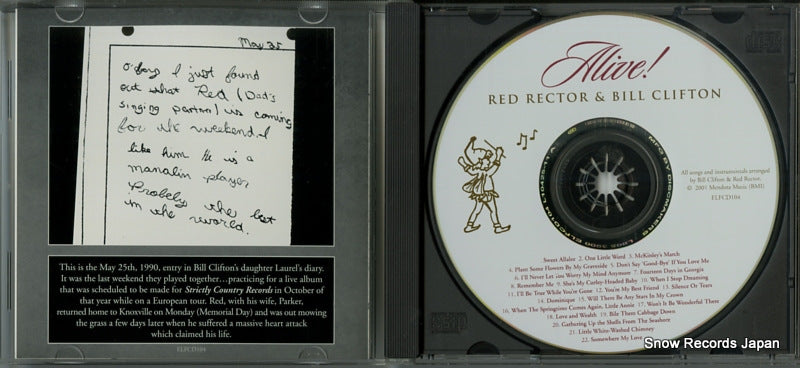 May 25
today I just found
out that Red (Dad's
singing partner) is coming
for the weekend. I
like him. He is a
manalin player
Probely the best
in the world.
This is the May 25th, 1990, entry in Bill Clifton's daughter Laurel's diary.
It was the last weekend they played together…practicing for a live album
that was scheduled to be made for Strictly Country Records in October of
that year while on a European tour. Red, with his wife, Parker,
returned home to Knoxville on Monday (Memorial Day) and was out mowing
the grass a few days later when he suffered a massive heart attack
which claimed his life.
ELFCD104
Alive!
RED RECTOR & BILL CLIFTON
All songs and instrumentals arranged
by Bill Clifton & Red Rector.
© 2001 Mendota Music (BMI)
ELFCD104
MFG BY DISCMAKERS
Sweet Allalee 2. One Little Word 3. McKinley's March
4. Plant Some Flowers By My Graveside 5. Don't Say 'Good-Bye' If You Love Me
6. I'll Never Let you Worry My Mind Anymore 7. Fourteen Days in Georgia
8. Remember Me 9. She's My Curley-Headed Baby 10. When I Stop Dreaming
11. I'll Be True While You're Gone 12. You're My Best Friend 13. Silence Or Tears
14. Dominique 15. Will There Be Any Stars In My Crown
16. When The Springtime Comes Again, Little Annie 17. Won't It Be Wonderful There
18. Love and Wealth 19. Bile Them Cabbage Down
20. Gathering Up the Shells From The Seashore
21. Little White-Washed Chimney
22. Somewhere My Love
Snow Records Japan